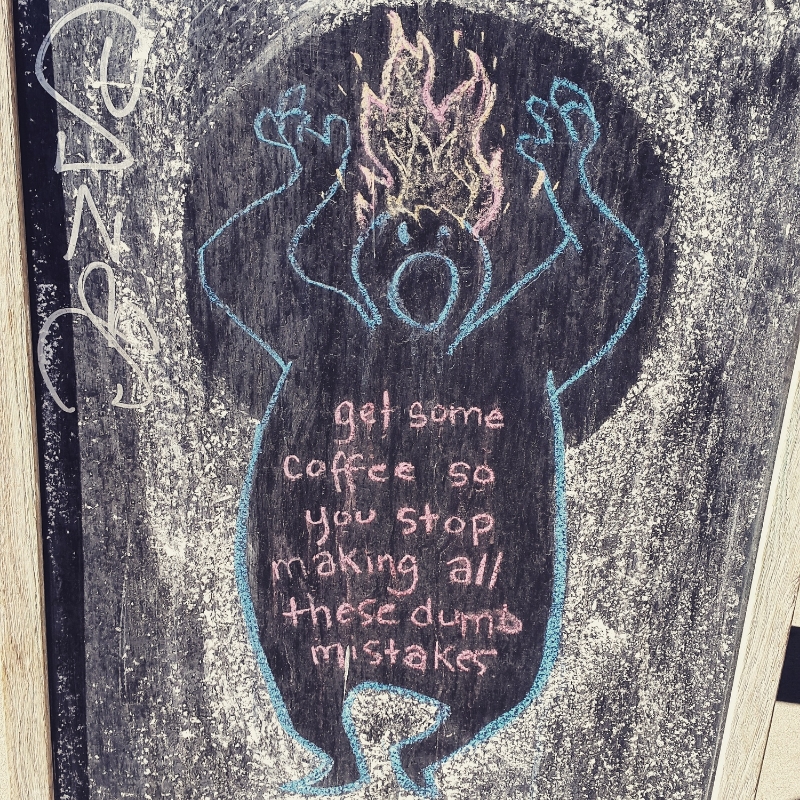 get some
coffee so
you stop
making all
these dumb
mistakes